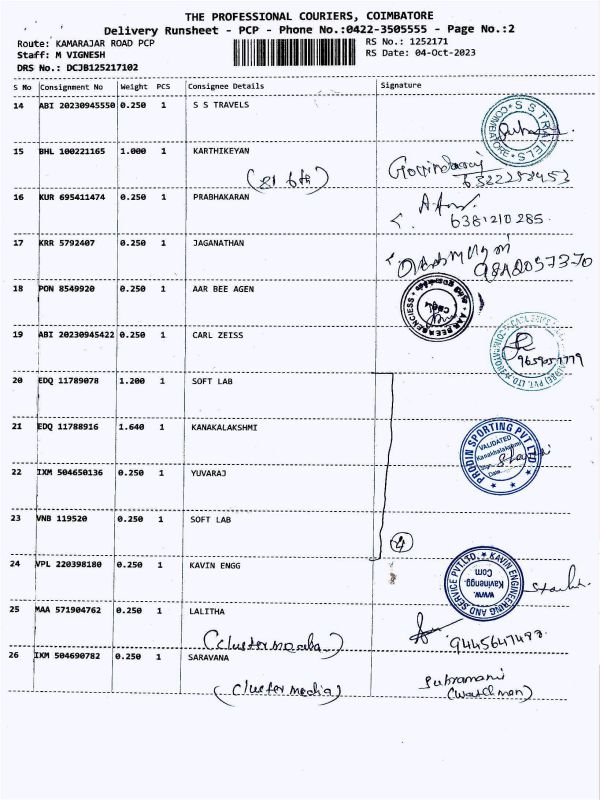 THE PROFESSIONAL COURIERS, COIMBATORE
Delivery Runsheet - PCP - Phone No.:0422-3505555 - Page No.:2
Route: KAMARAJAR ROAD PCP
Staff: M VIGNESH
DRS No.: DCJB125217102
RS No.: 1252171
RS Date: 04-Oct-2023
S No Consignment No Weight PCS Consignee Details Signature
14 ABI 20230945550 0.250 1 S S TRAVELS
S S TRAVELS COIMBATORE
15 BHL 100221165 1.000 1 KARTHIKEYAN
Govindaraj
16 KUR 695411474 0.250 1 PRABHAKARAN
6381210285
17 KRR 5792407 0.250 1 JAGANATHAN
18 PON 8549920 0.250 1 AAR BEE AGEN
AAR BEE AGENCIESS
19 ABI 20230945422 0.250 1 CARL ZEISS
9659059779
20 EDQ 11789078 1.200 1 SOFT LAB
21 EDQ 11788916 1.640 1 KANAKALAKSHMI
PRODIN SPORTING PVT LTD
VALIDATED
Kanakhalakshmi
Sign
Date
22 IXM 504650136 0.250 1 YUVARAJ
23 VNB 119520 0.250 1 SOFT LAB
4
24 VPL 220398180 0.250 1 KAVIN ENGG
KAVIN ENGINEERING AND SERVICE PVT.LTD.
www.
Kavinengg.
Com
25 MAA 571904762 0.250 1 LALITHA
(Cluster media)
26 IXM 504690782 0.250 1 SARAVANA
(Cluster media)
Subramani
(watchman)